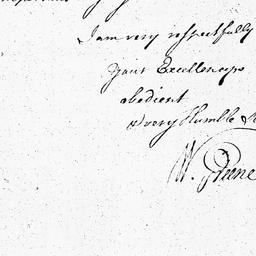 I am very respectfully
Your Excellencys
obedient
& very Humble Se
W. Greene